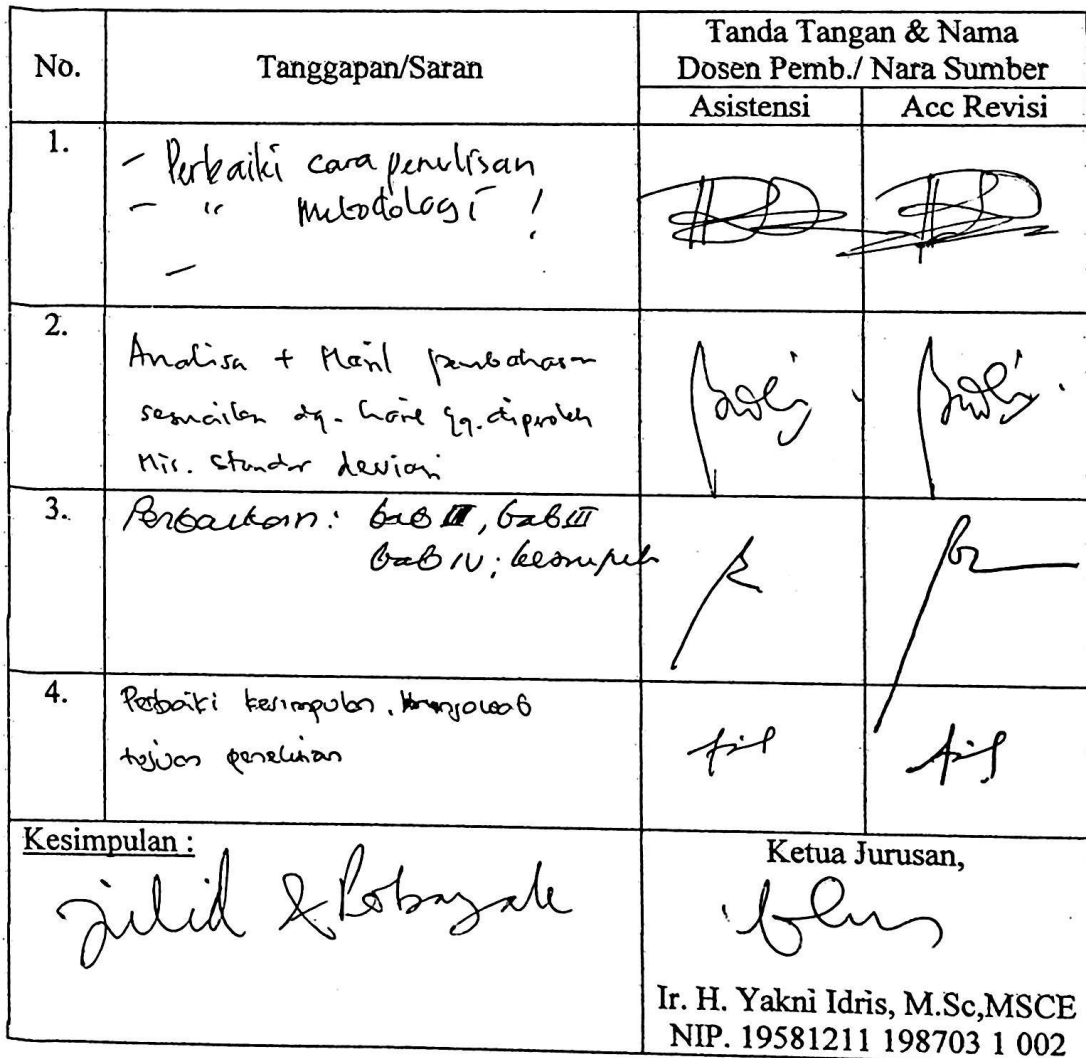 No.
Tanggapan/Saran
Tanda Tangan & Nama
Dosen Pemb./ Nara Sumber
Asistensi
Acc Revisi
1.
- Perbaiki cara penulisan
- " Metodologi !
-
2.
Analisa + Hasil pembahasan
sesuaikan dg. hasil yg. diperoleh
Mis. Standar deviasi
3.
Perbaikan: bab II, bab III
bab IV; kesimpul
4.
Perbaiki kesimpulan, menjawab
tujuan penelitian
Kesimpulan :
jilid & Perbanyak
Ketua Jurusan,
Ir. H. Yakni Idris, M.Sc,MSCE
NIP. 19581211 198703 1 002